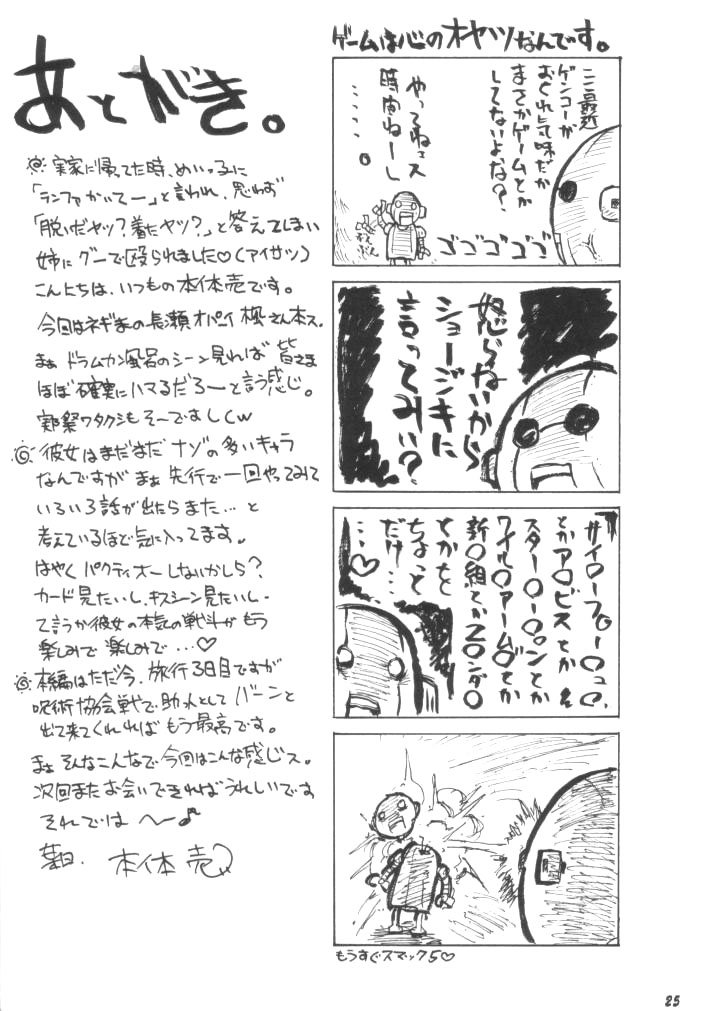 あとがき。
実家に帰ってた時、めいっ子に
「ランファかいてー」と言われ、思わず
「脱いだヤツ?着たヤツ?」と答えてしまい
姉にグーで殴られました♡(アイサツ)
こんにちは、いつもの本体売です。
今回はネギまの長瀬オパーイ楓さん本ス。
まぁドラムカン風呂のシーン見れば皆さま
ほぼ確実にハマるだろーと言う感じ。
実際ワタクシもそーですしw
彼女はまだまだナゾの多いキャラ
なんですがまぁ先行で一回やってみて
いろいろ話が出たらまた…と
考えているほど気に入ってます。
はやくパクティオーしないかしら?
カード見たいし、キスシーン見たいし、
て言うか彼女の本気の戦斗がもう
楽しみで楽しみで…♡
本編はただ今、旅行3日目ですが
呪術協会戦で助っ人としてバーンと
出て来てくれればもう最高です。
まぁそんなこんなで今回はこんな感じス。
次回またお会いできればうれしいです
それでは〜♪
本体売
ゲームは心のオヤツなんです。
ここ最近
ゲンコーが
おくれ気味だが
まさかゲームとか
してないよな?
やってねェス
時間ねーし
……。
ゴゴゴゴゴ
怒らないから
ショージキに
言ってみい?
サイ○ーフ○ー○ュ○、
とかア○ビスとか
スター○ー○ンとか
ワイル○アーム○とか
新○組とかZ○ンゲ○
とかを
ちょっと
だけ…
…♡
もうすぐスマック5♡
25